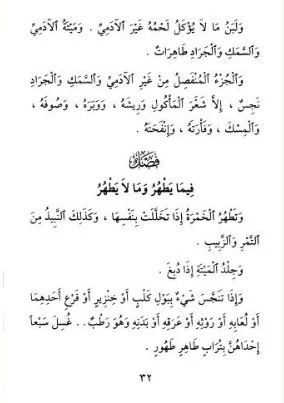 وَلَبَنُ مَا لَا يُؤْكَلُ لَحْمُهُ غَيْرَ ٱلْآدَمِيِّ . وَمَيْتَةُ ٱلْآدَمِيِّ
وَٱلسَّمَكِ وَٱلْجَرَادِ طَاهِرَاتٌ .
وَٱلْجُزْءُ ٱلْمُنْفَصِلُ مِنْ غَيْرِ ٱلْآدَمِيِّ وَٱلسَّمَكِ وَٱلْجَرَادِ
نَجِسٌ ، إِلَّا شَعْرَ ٱلْمَأْكُولِ وَرِيشَهُ ، وَوَبَرَهُ ، وَصُوفَهُ ،
وَٱلْمِسْكَ ، وَفَأْرَتَهُ ، وَإِنْفَحَتَهُ .
فَصْلٌ
فِيمَا يَطْهُرُ وَمَا لَا يَطْهُرُ
وَتَطْهُرُ ٱلْخَمْرَةُ إِذَا تَخَلَّلَتْ بِنَفْسِهَا ، وَكَذٰلِكَ ٱلنَّبِيذُ مِنَ
ٱلتَّمْرِ وَٱلزَّبِيبِ .
وَجِلْدُ ٱلْمَيْتَةِ إِذَا دُبِغَ .
وَإِذَا تَنَجَّسَ شَيْءٌ بِبَوْلِ كَلْبٍ أَوْ خِنْزِيرٍ أَوْ فَرْعِ أَحَدِهِمَا
أَوْ لُعَابِهِ أَوْ رَوْثِهِ أَوْ عَرَقِهِ أَوْ بَدَنِهِ وَهُوَ رَطْبٌ.. غُسِلَ سَبْعاً
إِحْدَاهُنَّ بِتُرَابٍ طَاهِرٍ طَهُورٍ .
٣٢